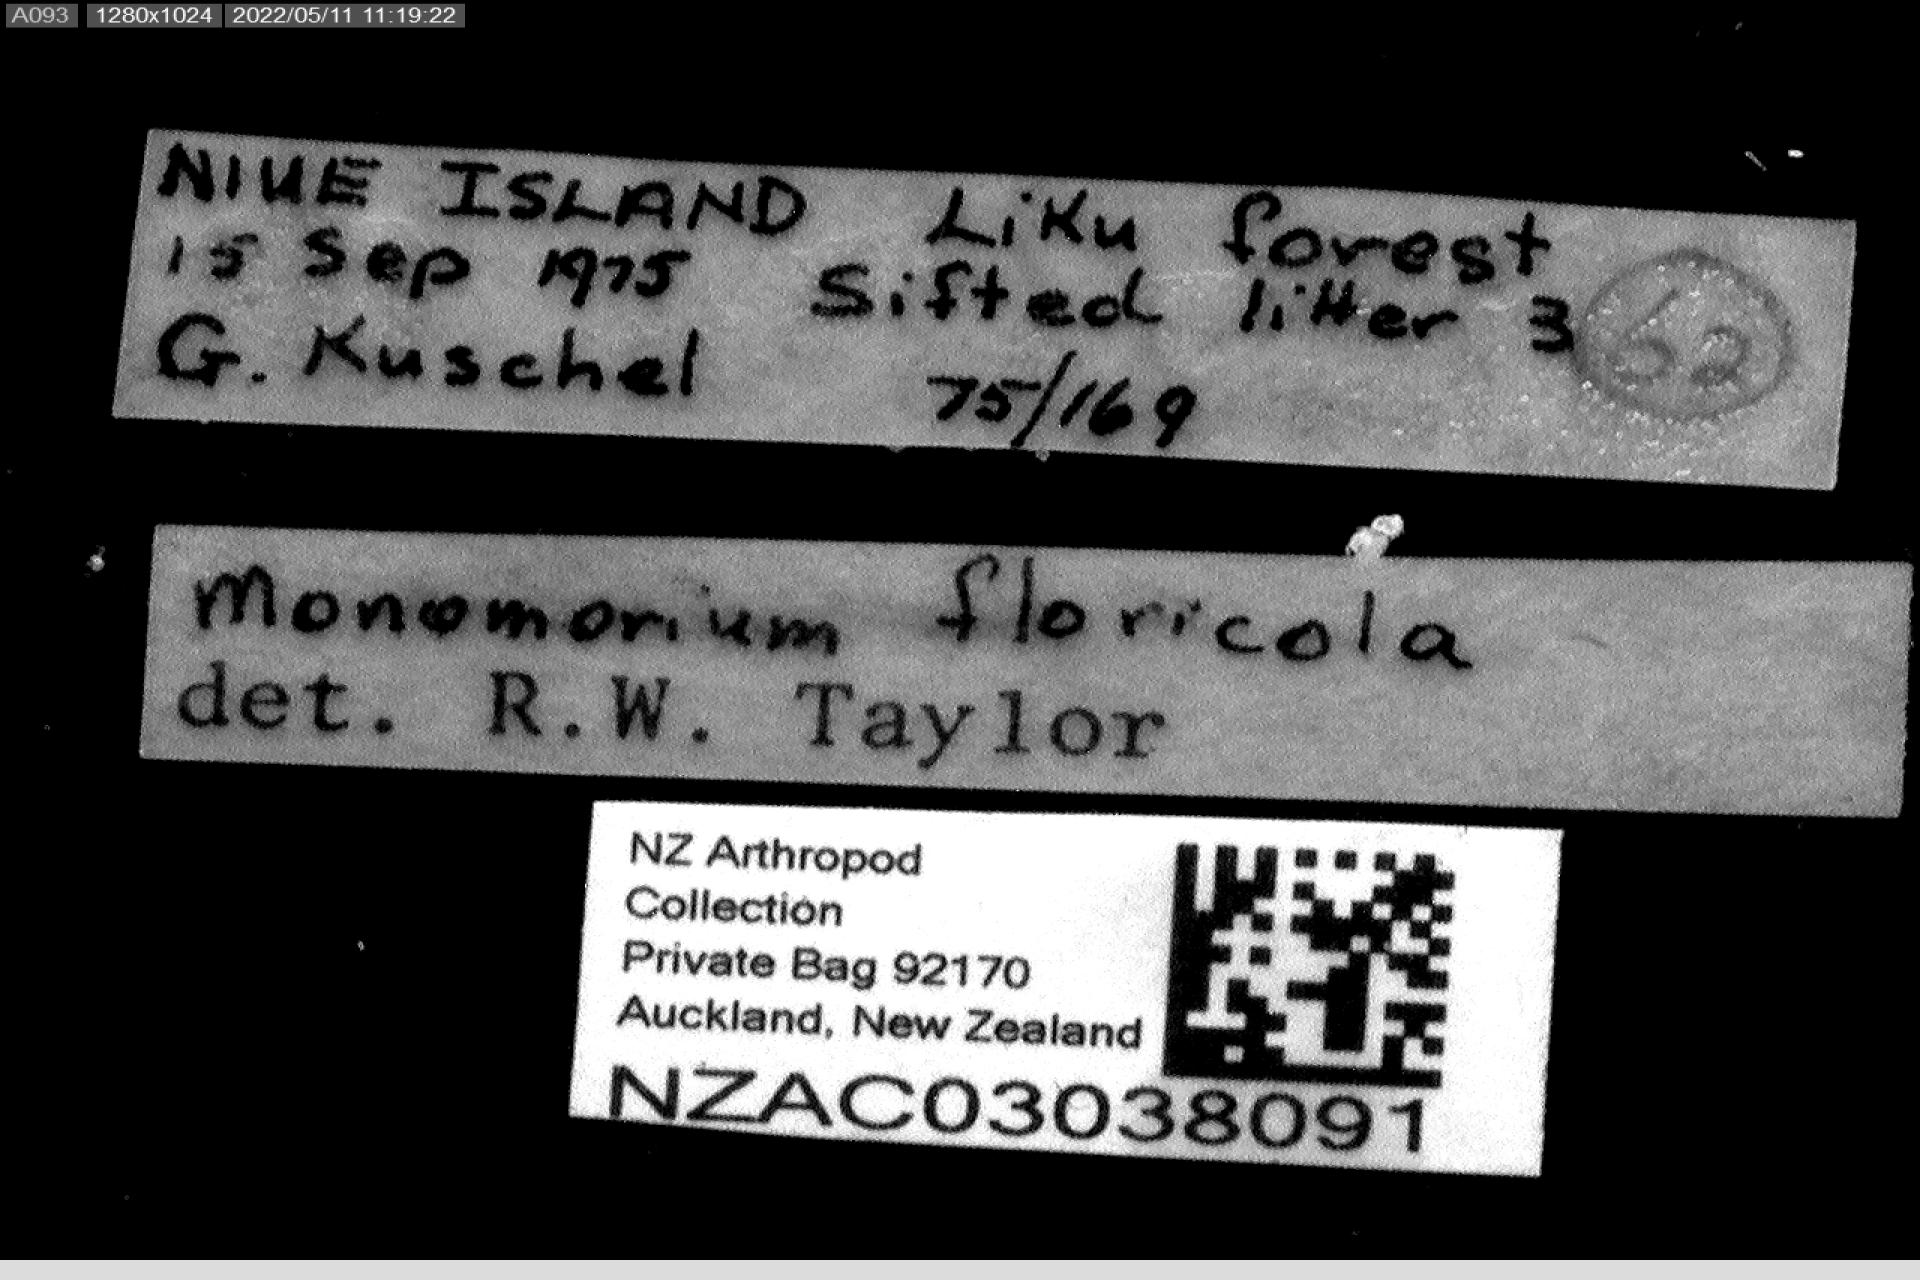 A093 1280x1024 2022/05/11 11:19:22
NIUE ISLAND Liku forest
15 Sep 1975 Sifted litter 3
G. Kuschel 75/169
Monomorium floricola
det. R.W. Taylor
NZ Arthropod
Collection
Private Bag 92170
Auckland, New Zealand
NZAC03038091